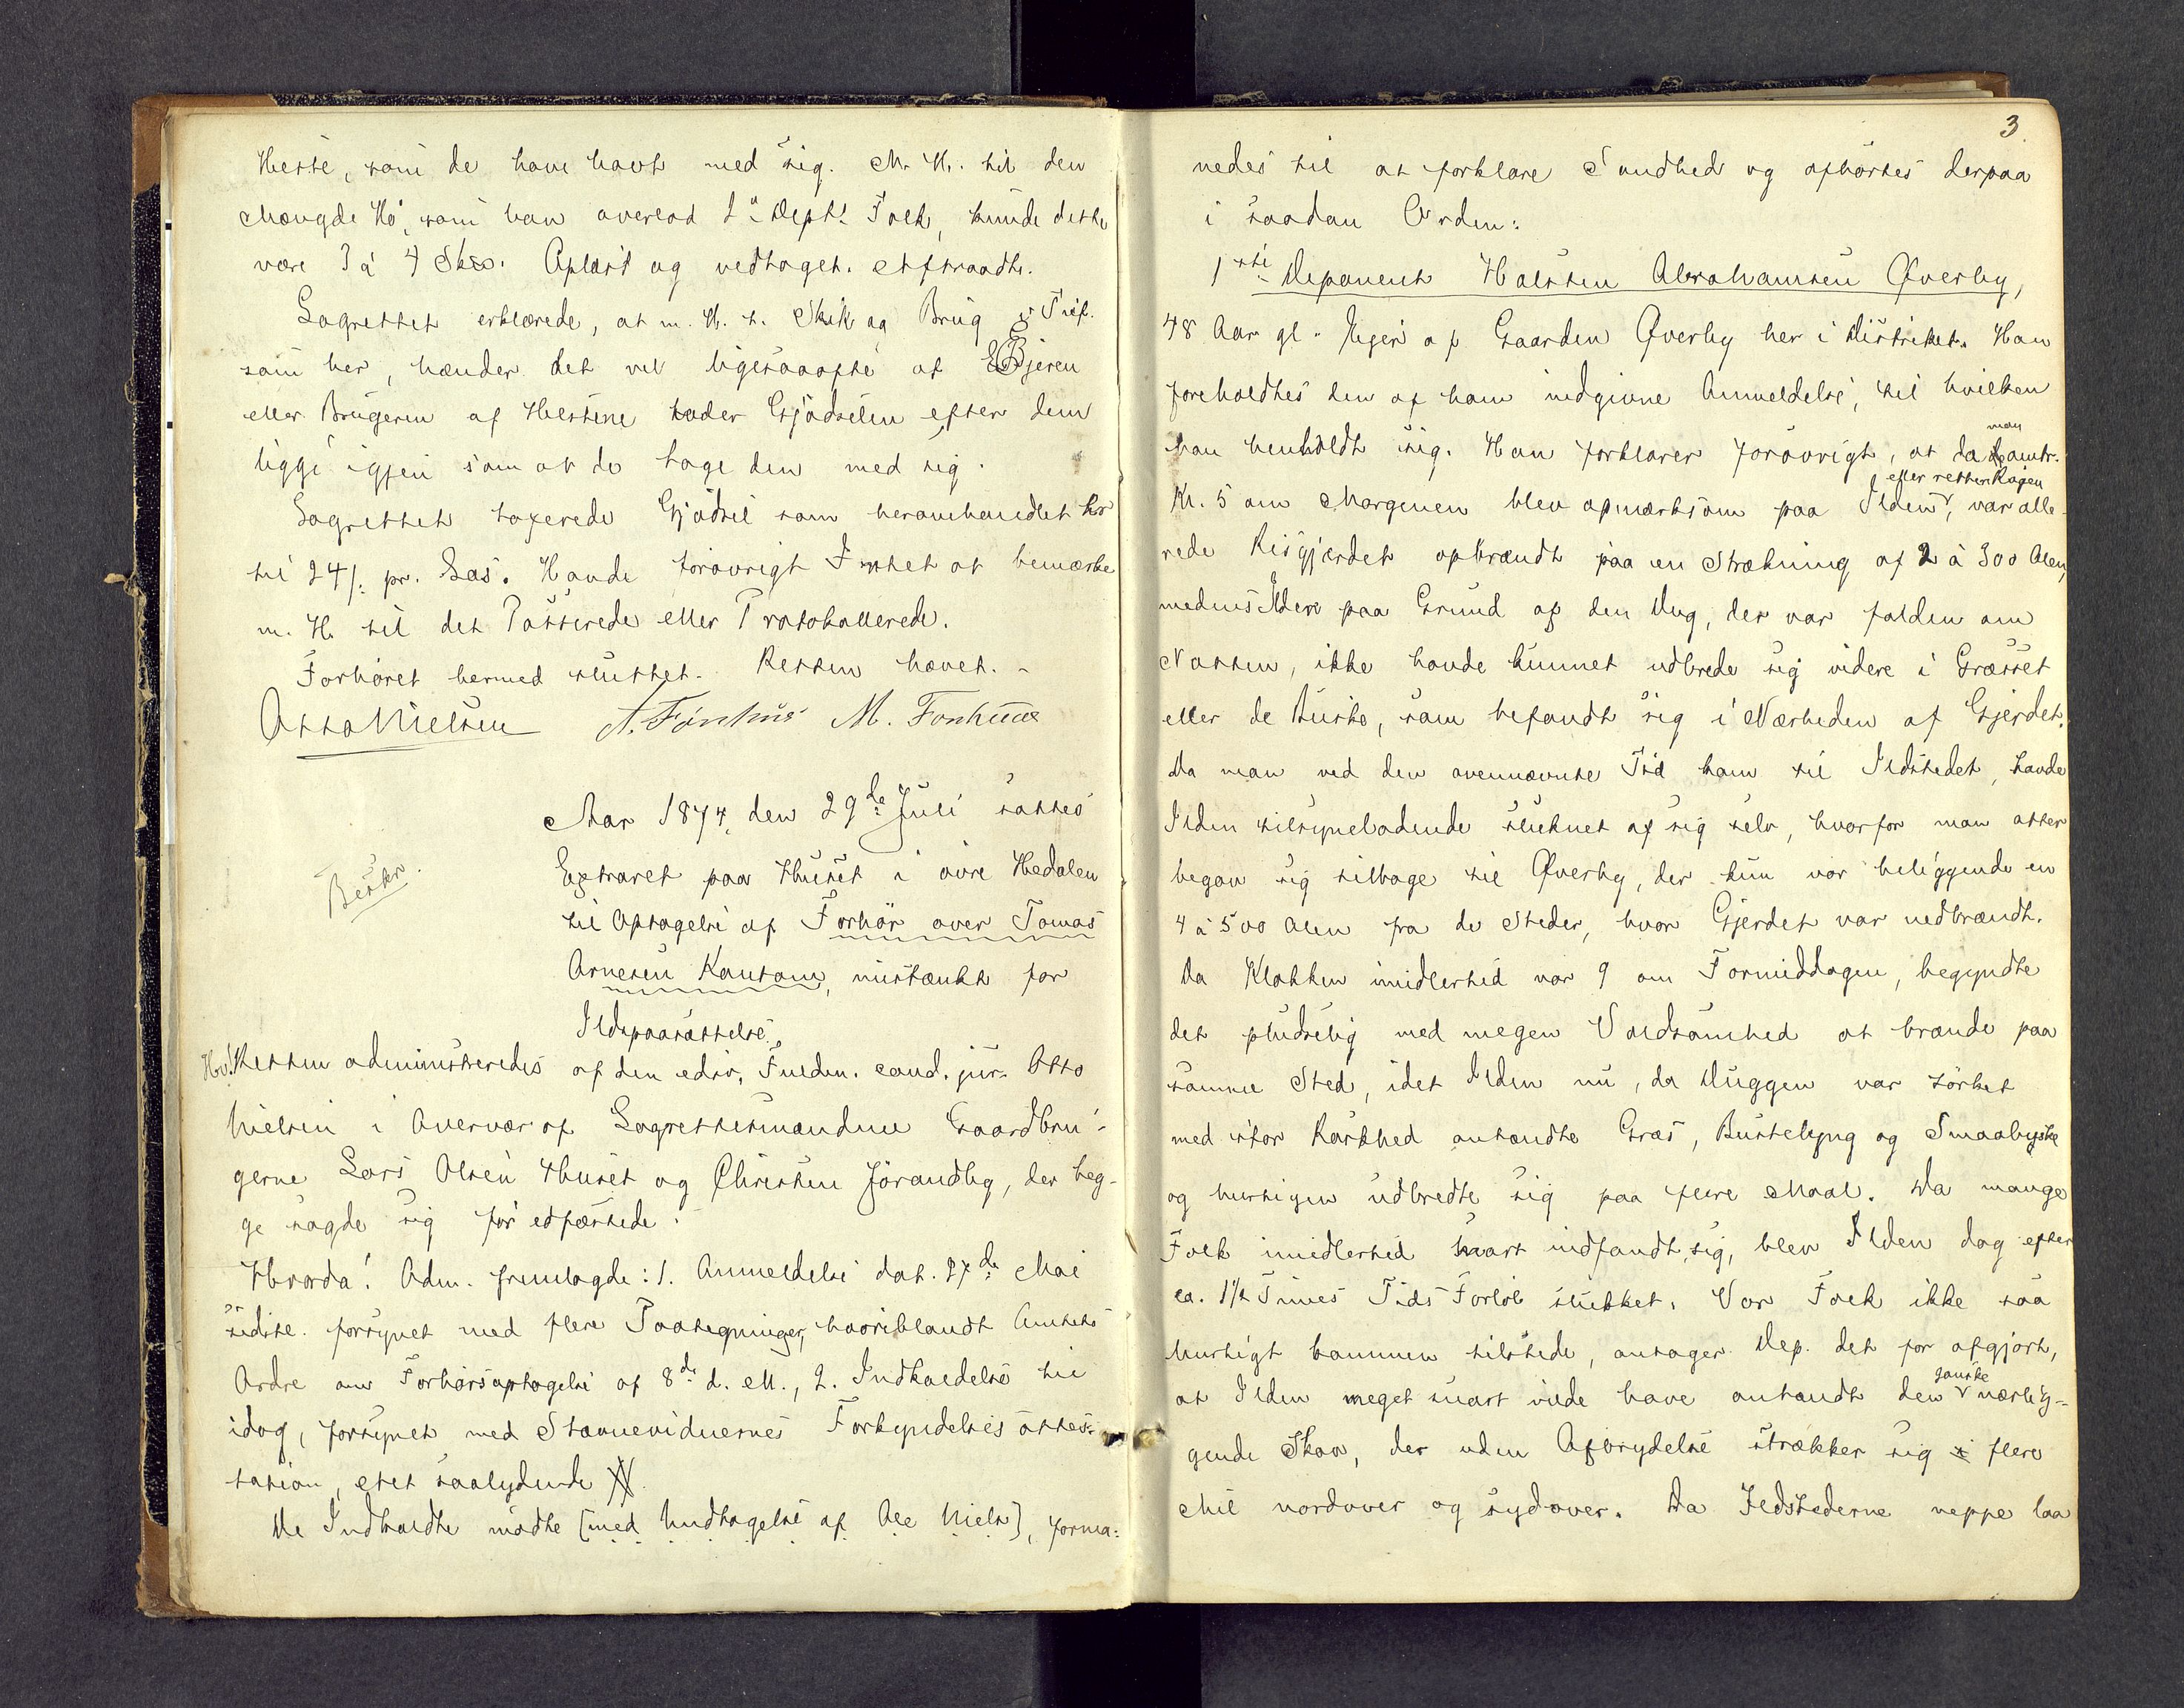 Heste, som de have havt med sig. M. H. til den
Mængde Hö, som han overlod 1ste Dept. Folk, kunde dette
være 3 á 4 Skpd. Oplæst og vedtaget. Aftraadte.
Lagrettet erklærede, at m. H. t. Skik og Brug i Tilf.
som her, hænder det vel ligesaaofte at Ejeren
eller Brugeren af Hestene lader Gjödselen efter dem
ligge igjen som at de tage den med sig.
Lagrettet taxerede Gjödsel som heromhandlet her
til 24 /: pr. Læs. Havde forövrigt Intet at bemærke
m. H. til det Passerede eller Protokollerede.
Forhöret hermed sluttet. Retten hævet. -
Otto Nielsen A. Fönhus M. Fonhuus
Aar 1874, den 29de Juli sattes
Extraret paa Huset i övre Hedalen
Beskr.
til Optagelse af Forhör over Tomas
Arnesen Kantom, mistænkt for
Ildspaasættelse.
Hv! Retten administreredes af den edsv. Fuldm. cand. jur. Otto
Nielsen i Overvær af Lagrettesmændene Gaardbru-
gerne Lars Olsen Huset og Christen Jörandby, der beg-
ge sagde sig för edfæstede.
Hvorda! Adm. fremlagde: 1. Anmeldelse dat. 27de Mai
sidstl. forsynet med flere Paategninger, hvoriblandt Amtets
Ordre om Forhörsoptagelse af 8de d. M., 2. Indkaldelse til
idag, forsynet med Stævnevidnernes Forkyndelsesattes-
tation, eret saalydende N.
De Indkaldte mödte [med Undtagelse af Ole Niels], forma-
3
nedes til at forklare Sandhed og afhörtes derpaa
i saadan Orden:
1ste Deponent Halsten Abrahamsen Øverby,
48 Aar gl. Ejer af Gaarden Øverby her i Distriktet. Han
foreholdtes den af ham indgivne Anmeldelse, til hvilken
han henholdt sig. Han forklarer forövrigt, at da man omtr.
Kl. 5 om Morgenen blev opmærksom paa Ilden eller retter Rögen, var alle-
rede Risgjærdet opbrændt paa en Strækning af 2 á 300 Alen,
medens Ilden paa Grund af den Dug, der var falden om
Natten, ikke havde kunnet udbrede sig videre i Græsset
eller de Buske, som befandt sig i Nærheden af Gjerdet.
Da man ved den ovennævnte Tid kom til Ildstedet, havde
Ilden tilsyneladende sluknet af sig selv, hvorfor man atter
begav sig tilbage til Øverby, der kun var beliggende en
4 á 500 Alen fra de Steder, hvor Gjerdet var nedbrændt.
Da Klokken imidlertid var 9 om Formiddagen, begyndte
det pludselig med megen Voldsomhed at brænde paa
samme Sted, idet Ilden nu, da Duggen var törket
med stor Raskhed antændte Græs, Buskelyng og Smaabuske
og hurtigen udbredte sig paa flere Maal. Da mange
Folk imidlertid snart indfandt sig, blev Ilden dog efter
ca. 1 1/2 Times Tids Forlöb slukket. Var Folk ikke saa
hurtigt kommen tilstede, antager Dep. det for afgjort,
at Ilden meget snart vilde have antændt den ganske nærlig-
gende Skov, der uden Afbrydelse strækker sig flere
Mil nordover og sydover. Da Ildstederne neppe laa